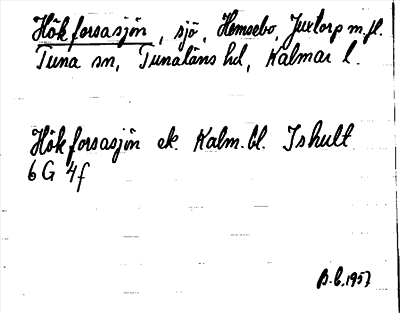 Hökforsasjön, sjö, Hemsebo, Juxtorp m.fl.
Tuna sn, Tunaläns hd, Kalmar l.
Hökforsasjön ek. Kalm.bl. Ishult
6 G 4f
B.C. 1957